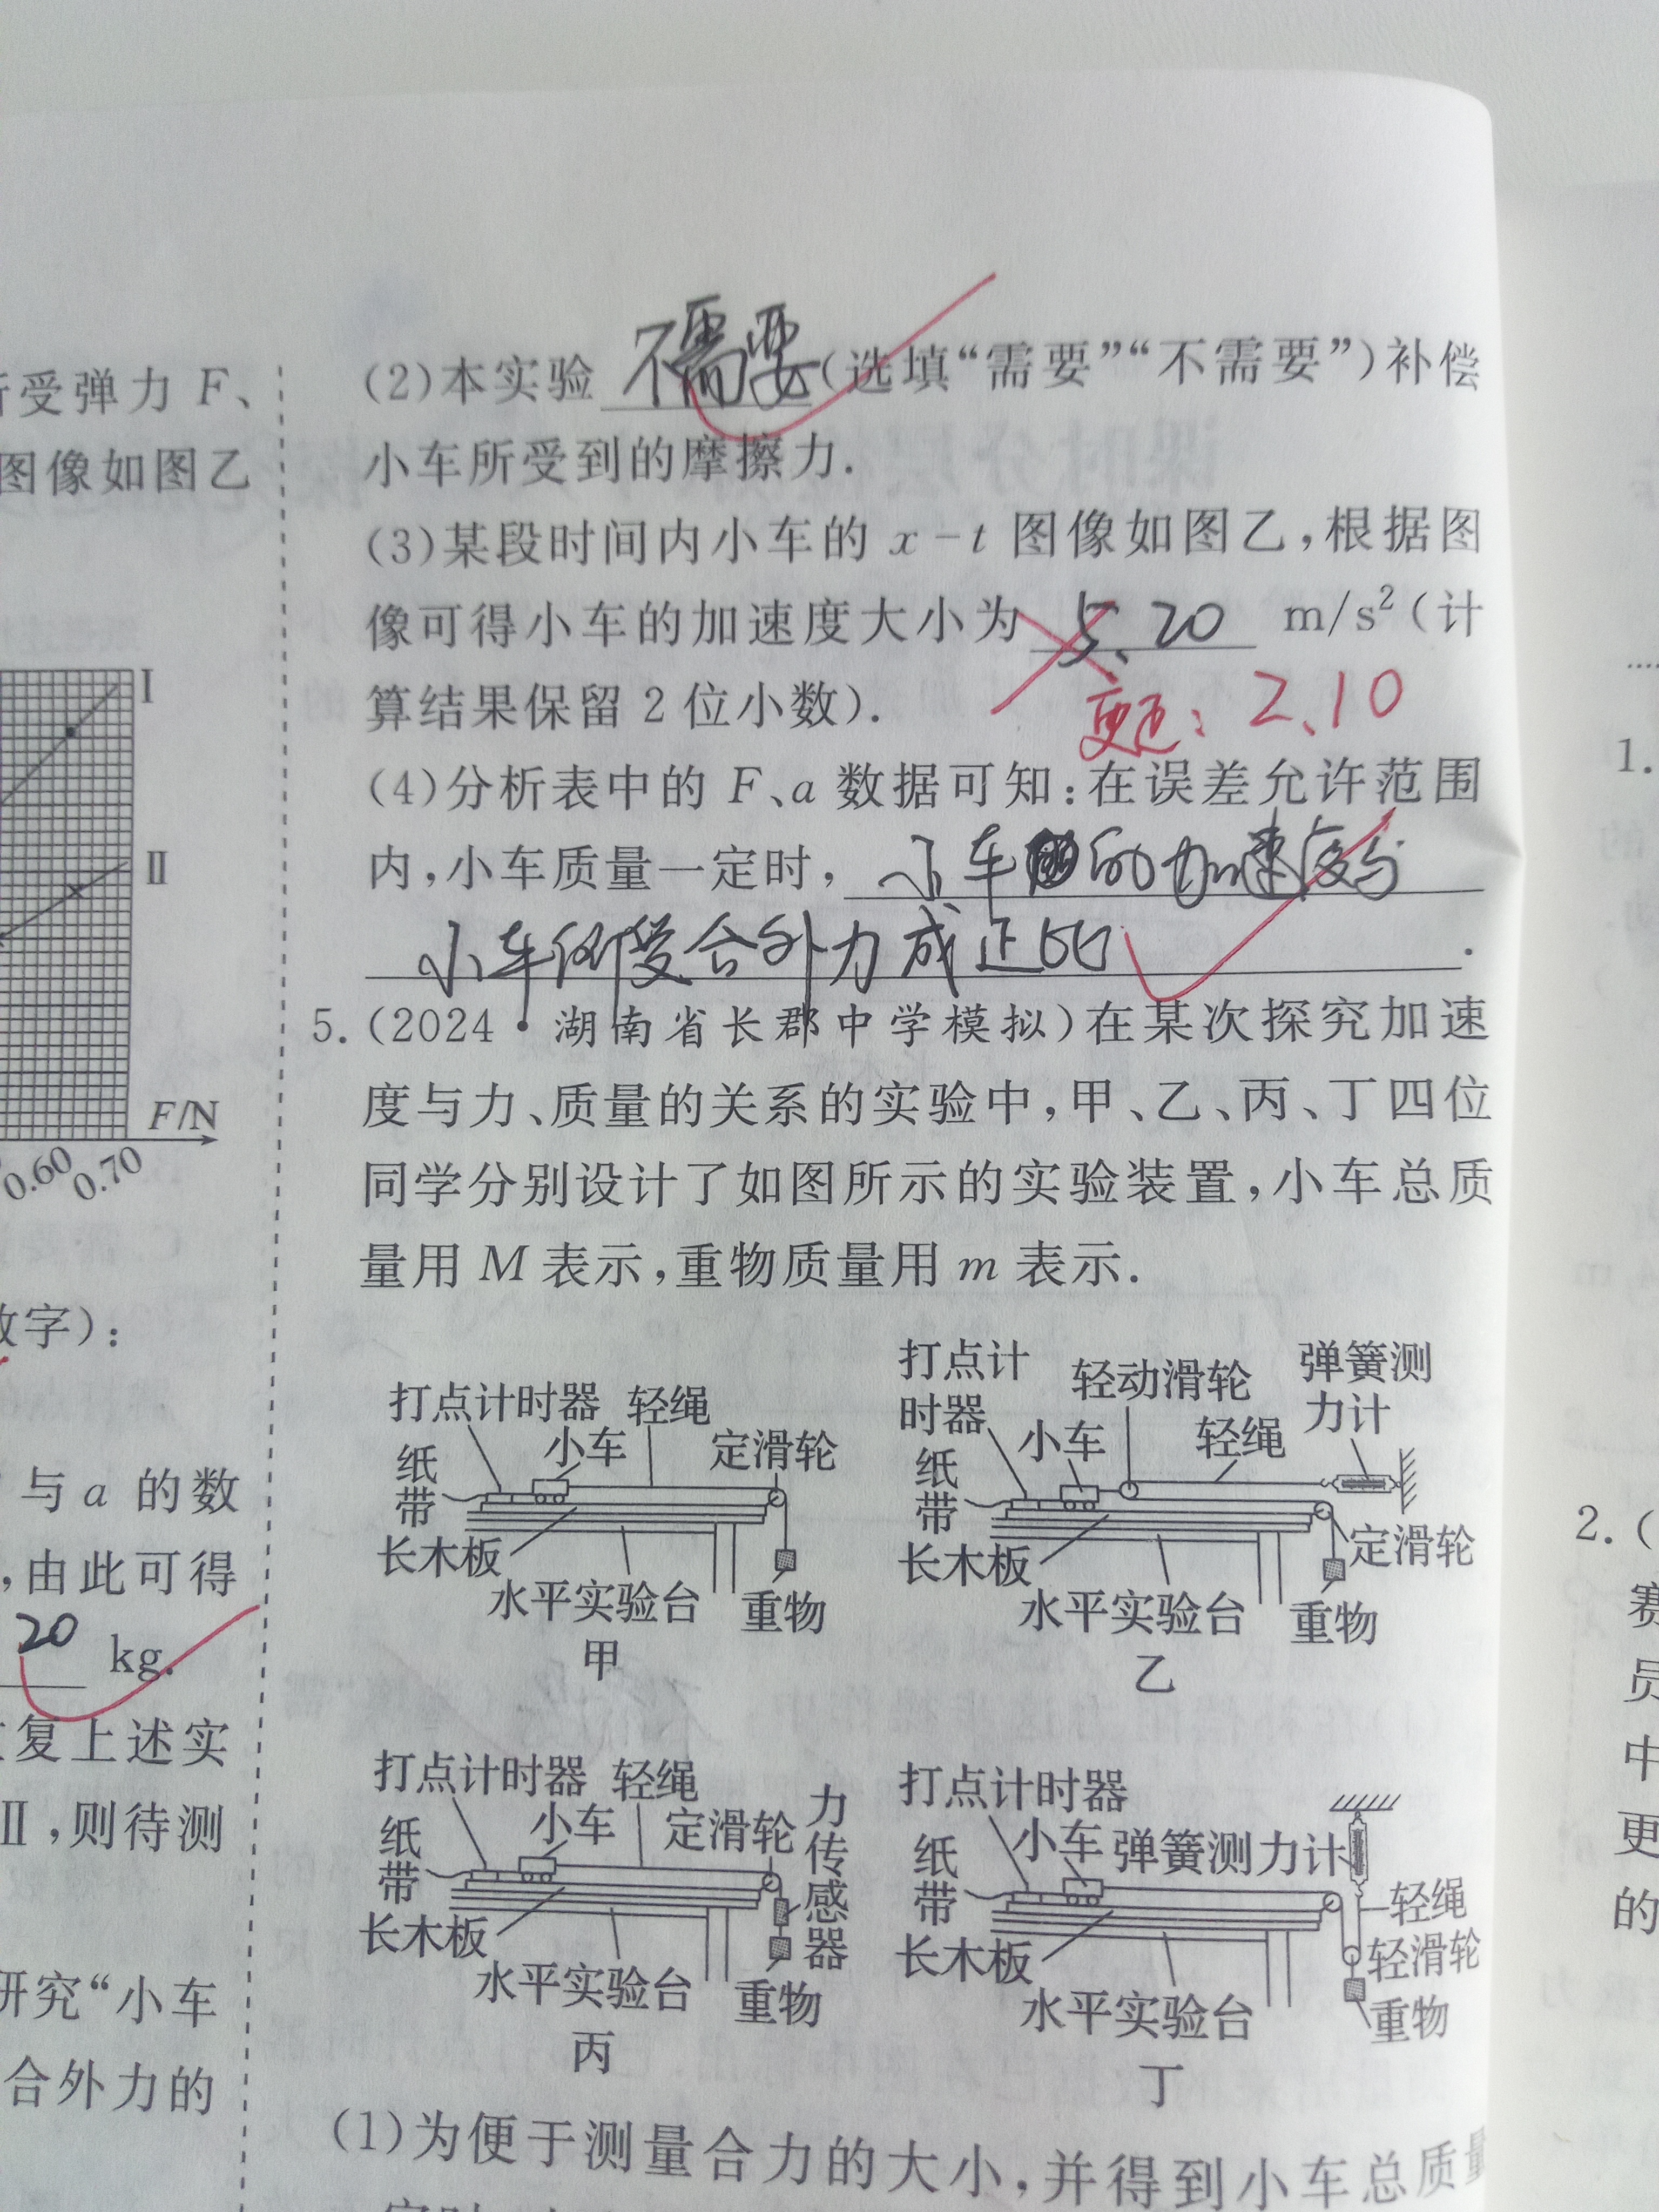 所受弹力 F、
图像如图乙
Ⅰ
Ⅱ
F/N
0.60 0.70
数字）：
与 a 的数
，由此可得
20 kg.
复上述实
Ⅱ，则待测
研究“小车
合外力的
(2)本实验 不需要 (选填“需要”“不需要”)补偿
小车所受到的摩擦力.
(3)某段时间内小车的 x-t 图像如图乙，根据图
像可得小车的加速度大小为 5.20 m/s²(计
算结果保留 2 位小数).
更正：2.10
(4)分析表中的 F、a 数据可知：在误差允许范围
内，小车质量一定时，小车的加速度与
小车所受合外力成正比.
5.(2024·湖南省长郡中学模拟)在某次探究加速
度与力、质量的关系的实验中，甲、乙、丙、丁四位
同学分别设计了如图所示的实验装置，小车总质
量用 M 表示，重物质量用 m 表示.
打点计时器 轻绳
小车 定滑轮
纸带
长木板
水平实验台 重物
甲
打点计时器 轻动滑轮 弹簧测力计
小车 轻绳
纸带
长木板 定滑轮
水平实验台 重物
乙
打点计时器 轻绳 力传感器
小车 定滑轮
纸带
长木板
水平实验台 重物
丙
打点计时器
小车 弹簧测力计
纸带 轻绳
长木板 轻滑轮
水平实验台 重物
丁
(1)为便于测量合力的大小，并得到小车总质量
1.
2.(
赛
员
中
更
的